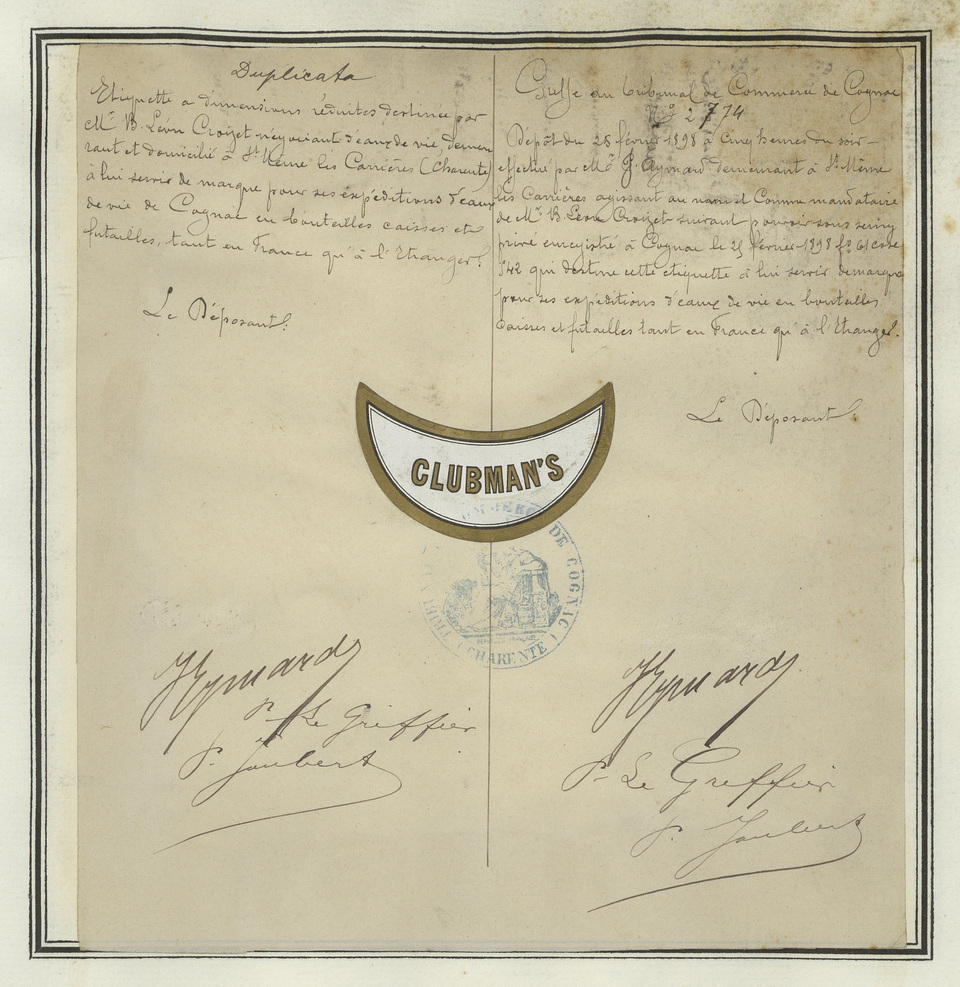 Duplicata
Etiquette a dimensions réduites destinée par
Mr B. Léon Croizet négociant d'eaux de vie, demeu
rant et domicilié à St Même les Carrières (Charente)
à lui servir de marque pour ses expéditions d'eaux
de vie de Cognac en bouteilles caisses et
futailles, tant en France qu'à l'Etranger.
Le Déposant.
Greffe du tribunal de Commerce de Cognac
No 2774
Dépôt du 28 février 1898 à cinq heures du soir
effectué par Mr J. Aymard demeurant à St Même
les Carrières agissant au nom et Comme mandataire
de Mr B. Léon Croizet suivant pouvoir sous seing
privé enregistré à Cognac le 25 février 1898 fo 61 case
542 qui destine cette étiquette à lui servir de marque
pour ses expéditions d'eaux de vie en bouteilles
caisses et futailles tant en France qu'à l'Etranger.
Le Déposant.
CLUBMAN'S
COMMERCE DE COGNAC
(CHARENTE)
JAymard
Pr Le Greffier
P. Joubert
JAymard
Pr Le Greffier
P. Joubert